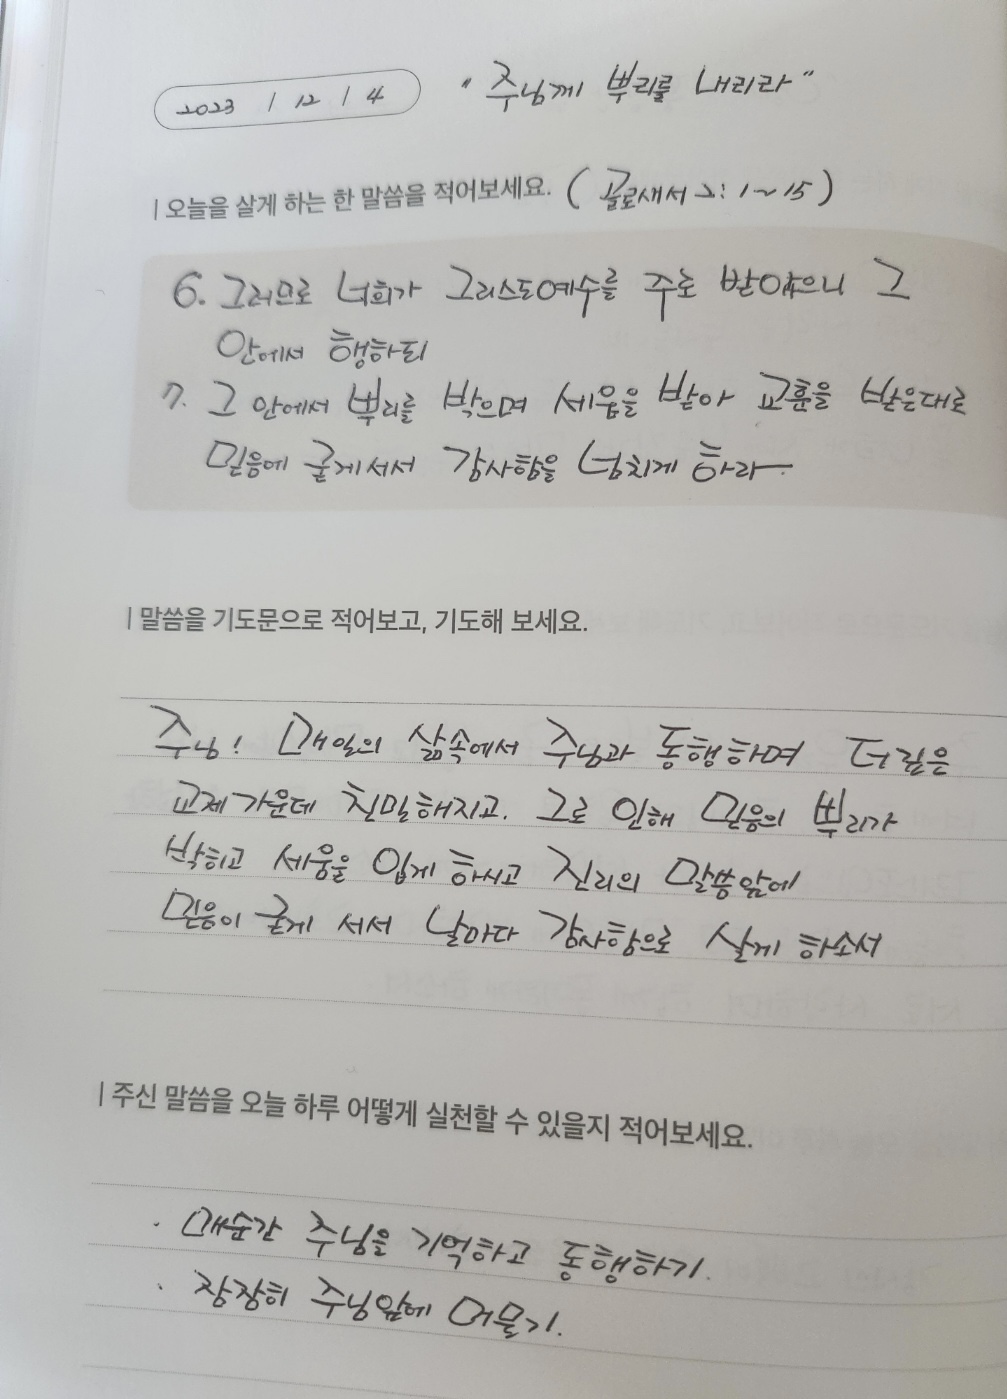 2023 / 12 / 4 " 주님께 뿌리를 내리라 "
| 오늘을 살게 하는 한 말씀을 적어보세요. ( 골로새서 2: 1~15 )
6. 그러므로 너희가 그리스도예수를 주로 받았으니 그
안에서 행하되
7. 그 안에서 뿌리를 박으며 세움을 받아 교훈을 받은대로
믿음에 굳게서서 감사함을 넘치게 하라.
| 말씀을 기도문으로 적어보고, 기도해 보세요.
주님! 매일의 삶속에서 주님과 동행하며 더깊은
교제가운데 친밀해지고. 그로 인해 믿음의 뿌리가
박히고 세움을 입게 하시고 진리의 말씀앞에
믿음이 굳게 서서 날마다 감사함으로 살게 하소서
| 주신 말씀을 오늘 하루 어떻게 실천할 수 있을지 적어보세요.
· 매순간 주님을 기억하고 동행하기.
· 잠잠히 주님앞에 머물기.